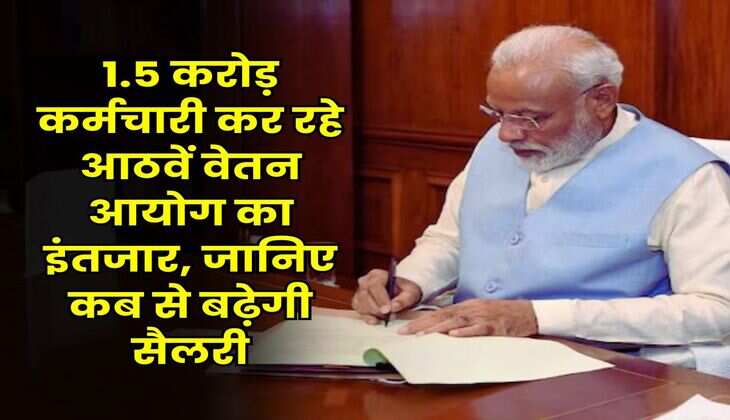 1.5 करोड़
कर्मचारी कर रहे
आठवें वेतन
आयोग का
इंतजार, जानिए
कब से बढ़ेगी
सैलरी